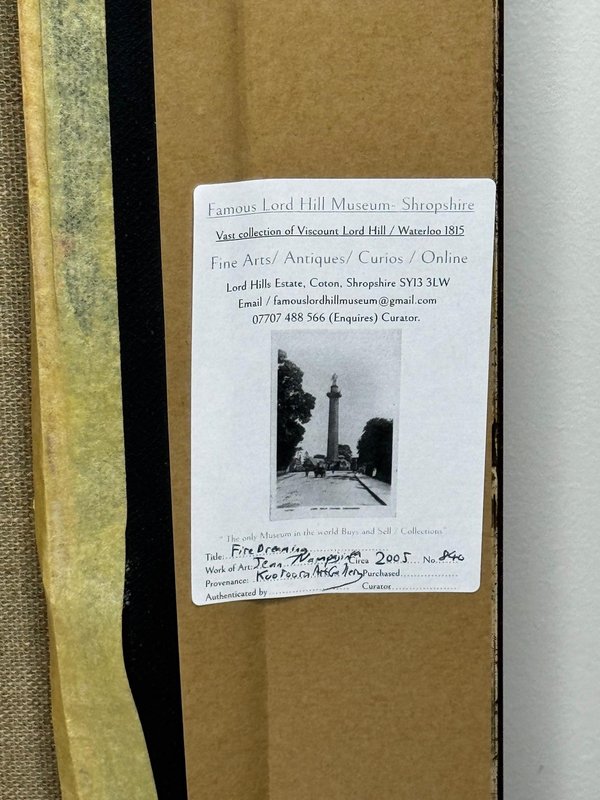 Famous Lord Hill Museum- Shropshire
Vast collection of Viscount Lord Hill / Waterloo 1815
Fine Arts/ Antiques/ Curios / Online
Lord Hills Estate, Coton, Shropshire SY13 3LW
Email / famouslordhillmuseum@gmail.com
07707 488 566 (Enquires) Curator.
" The only Museum in the world Buys and Sell / Collections"
Title: Fire Dreaming
Work of Art: Jean Nampajinpa Circa 2005 No. 840
Provenance: Art Gallery Purchased
Authenticated by Curator